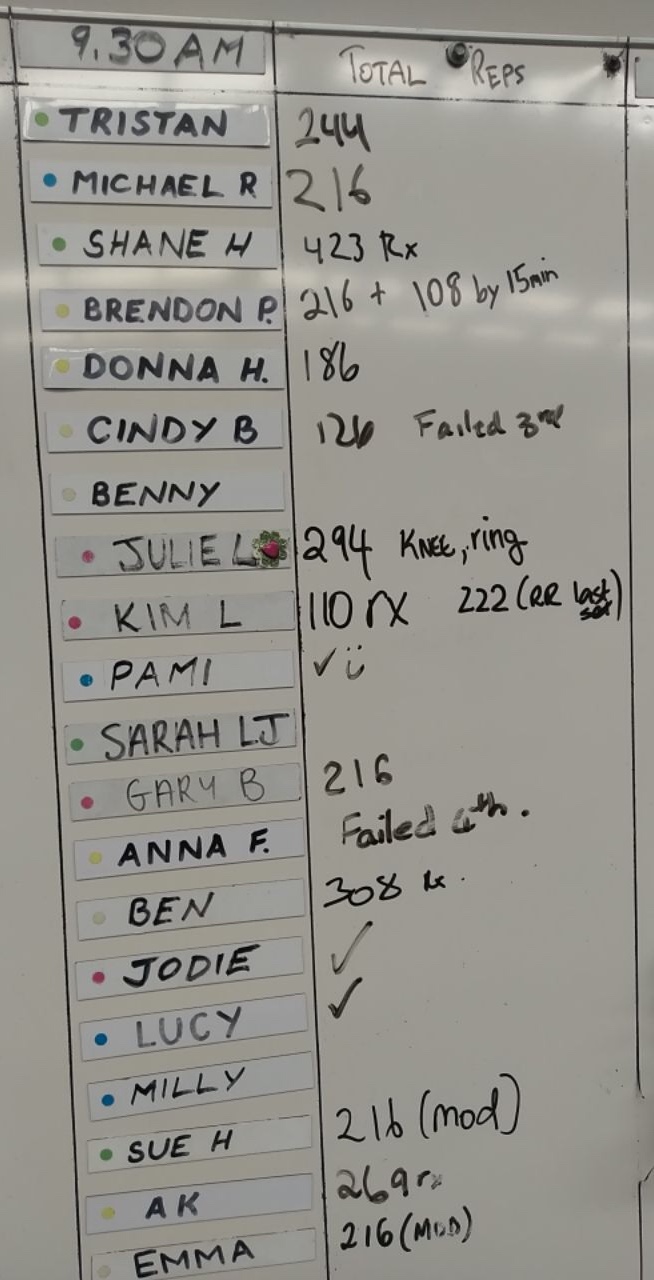 9.30AM TOTAL REPS
TRISTAN 244
MICHAEL R 216
SHANE H 423 Rx
BRENDON P. 216 + 108 by 15min
DONNA H. 186
CINDY B 126 Failed 3rd
BENNY
JULIE L 294 KNEE, ring
KIM L 110 rx 222 (RR last set)
PAMI ✓ ü
SARAH LJ
GARY B 216
ANNA F. Failed 4th.
BEN 308 Rx.
JODIE ✓
LUCY ✓
MILLY
SUE H 216 (mod)
AK 269 rx
EMMA 216 (MOD)